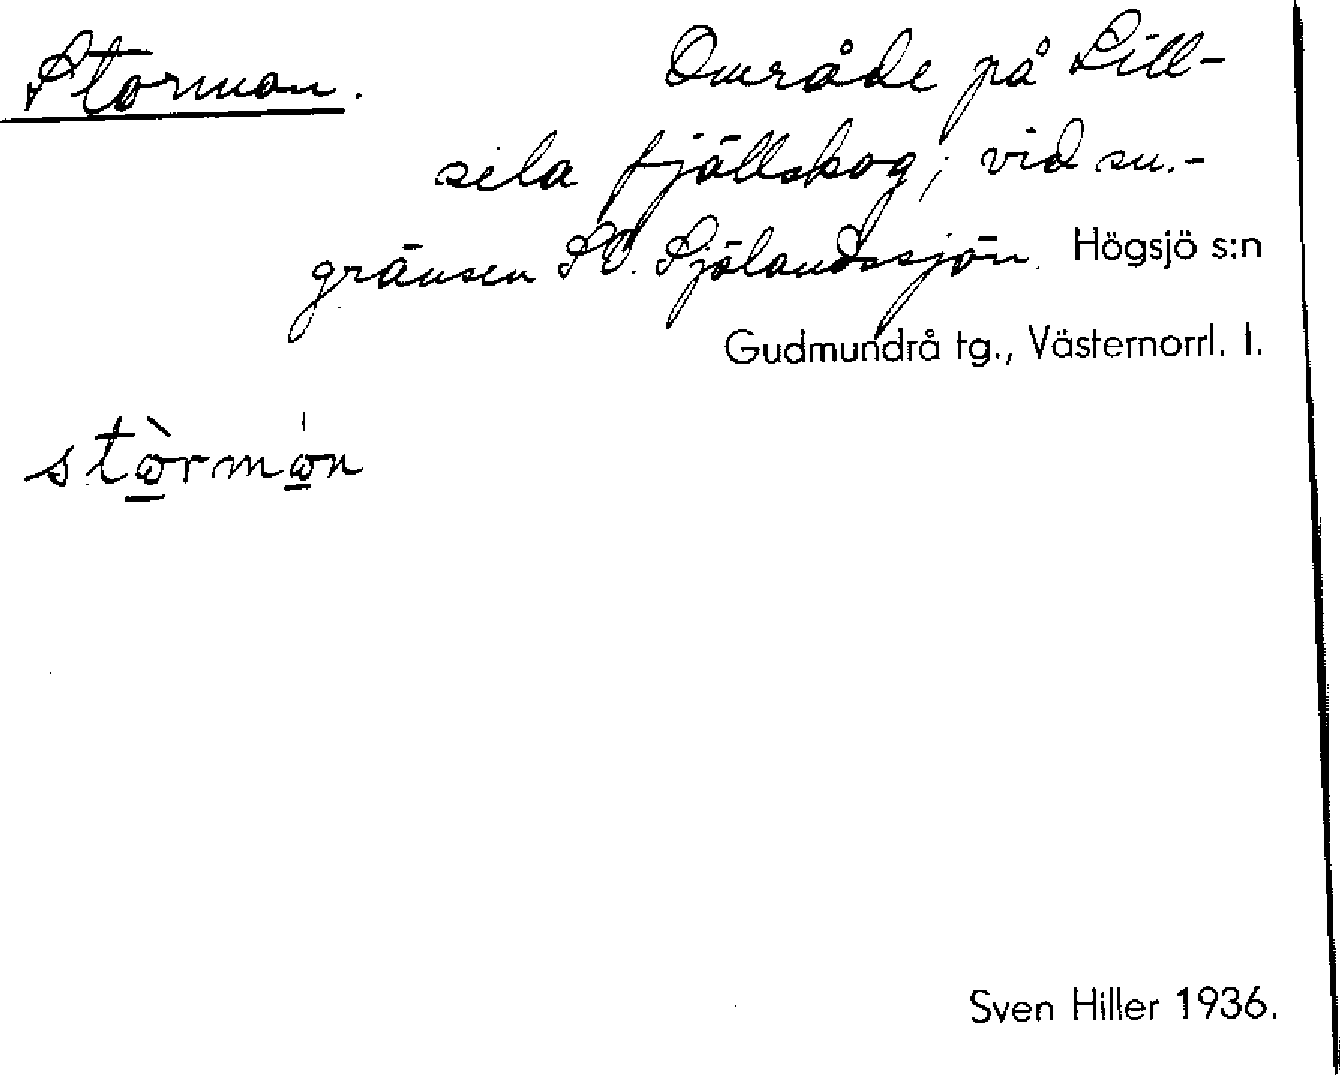 Stormon.
Område på Lill-
sela fjällskog; vid sn.-
gränsen SV. Själandssjön. Högsjö s:n
Gudmundrå tg., Västernorrl. l.
stòrmón
Sven Hiller 1936.